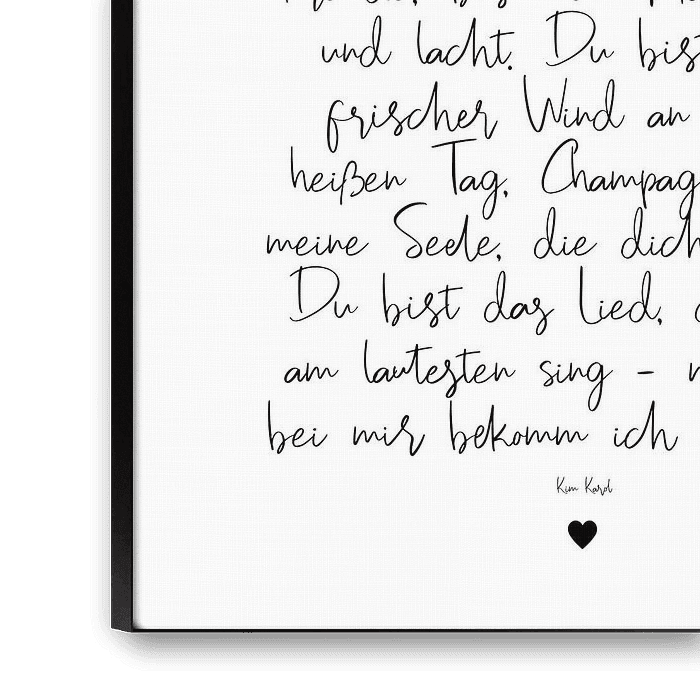 und lacht. Du bist
frischer Wind an
heißen Tag, Champag
meine Seele, die dich
Du bist das Lied,
am lautesten sing -
bei mir bekomm ich
Kim Karol